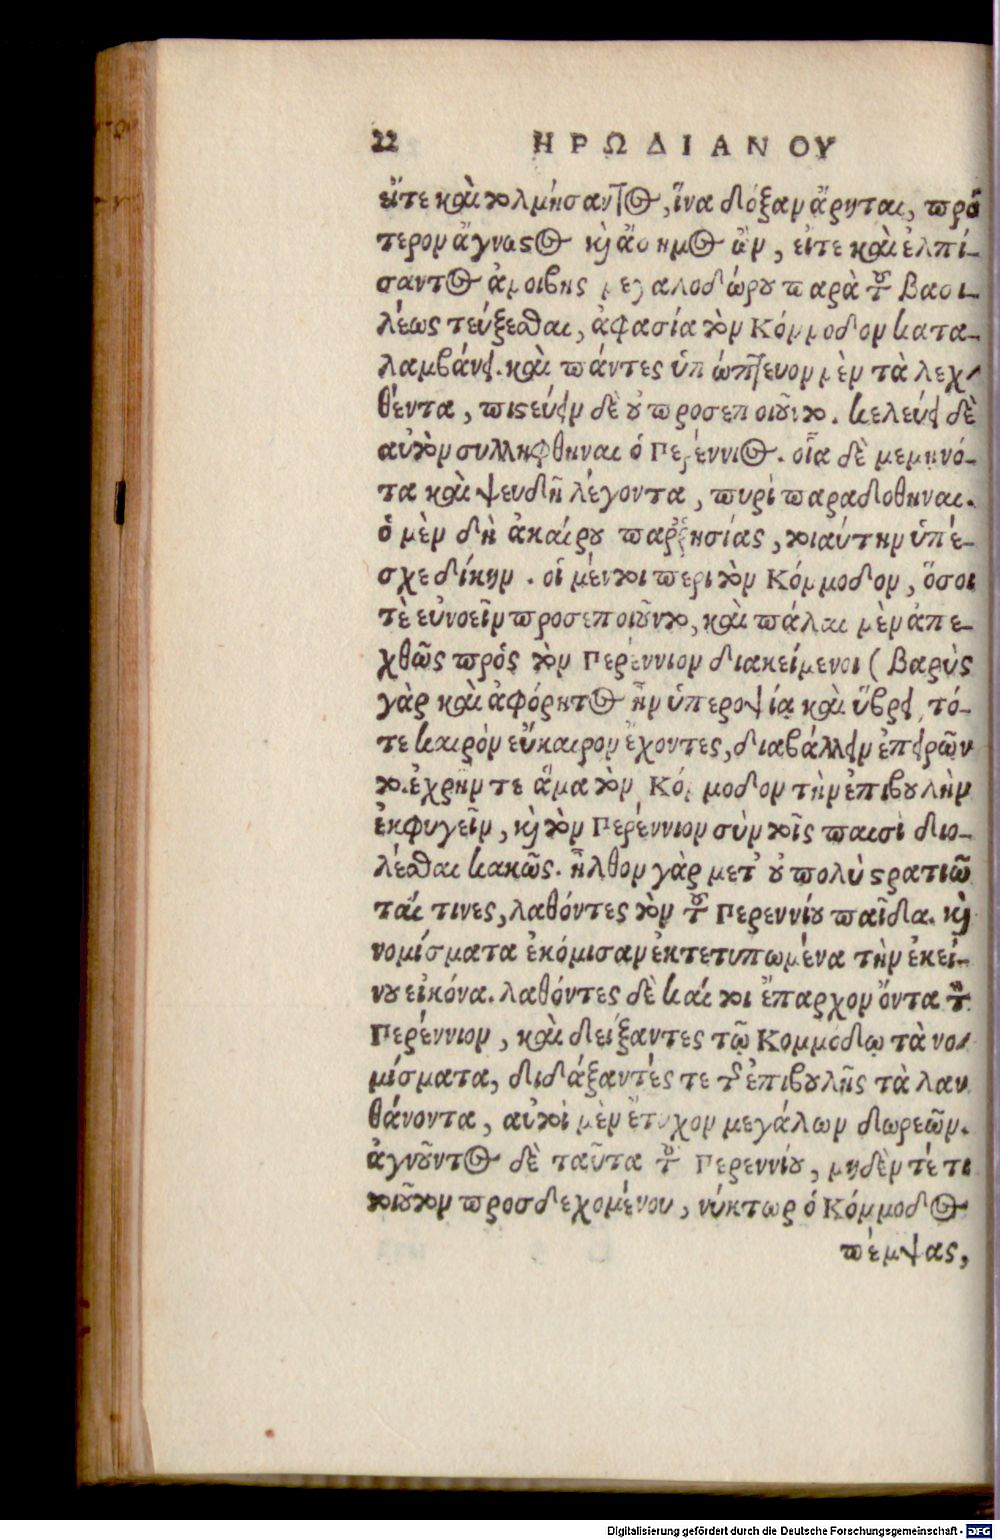 22 ΗΡΩΔΙΑΝΟΥ
εἴτε καὶ τολμήσαντος, ἵνα δόξαν ἄρηται, πρό
τερον ἄγνωστος καὶ ἄσημος ὢν, εἴτε καὶ ἐλπί-
σαντος ἀμοιβῆς μεγαλοδώρου παρὰ τοῦ βασι-
λέως τεύξεσθαι, ἀφασία τὸν Κόμμοδον κατα-
λαμβάνει. καὶ πάντες ὑπώπτευον μὲν τὰ λεχ-
θέντα, πιστεύειν δὲ οὐ προσεποιοῦντο. κελεύει δὲ
αὐτὸν συλληφθῆναι ὁ Περέννιος. οἷα δὲ μεμηνό-
τα καὶ ψευδῆ λέγοντα, πυρὶ παραδοθῆναι.
ὁ μὲν δὴ ἀκαίρου παῤῥησίας, τοιαύτην ὑπέ-
σχε δίκην. οἱ μέντοι περι τὸν Κόμμοδον, ὅσοι
τὲ εὐνοεῖν προσεποιοῦντο, καὶ πάλαι μὲν ἀπε-
χθῶς πρός τὸν Περέννιον διακείμενοι (βαρὺς
γὰρ καὶ ἀφόρητος ἦν ὑπεροψίᾳ καὶ ὕβρει, τό-
τε καιρὸν εὔκαιρον ἔχοντες, διαβάλλειν ἐπειρῶντ
το. ἐχρῆν τε ἅμα τὸν Κόμμοδον τὴν ἐπιβουλὴν
ἐκφυγεῖν, καὶ τὸν Περέννιον σὺν τοῖς παισὶ διο-
λέσθαι κακῶς. ἦλθον γὰρ μετ' οὐ πολὺ στρατιῶ
ταί τινες, λαθόντες τὸν τοῦ Περεννίου παῖδα. καὶ
νομίσματα ἐκόμισαν ἐκτετυπωμένα τὴν ἐκεί-
νου εἰκόνα. λαθόντες δὲ καί τοι ἔπαρχον ὄντα τὸν
Περέννιον, καὶ δείξαντες τῷ Κομμόδῳ τὰ νο-
μίσματα, διδάξαντές τε τῆς ἐπιβουλῆς τὰ λαν
θάνοντα, αὐτοὶ μὲν ἔτυχον μεγάλων δωρεῶν.
ἀγνοῦντος δὲ ταῦτα τοῦ Περεννίου, μηδὲν τέ τι
τοιοῦτον προσδεχομένου, νύκτωρ ὁ Κόμμοδος
πέμψας,
Digitalisierung gefördert durch die Deutsche Forschungsgemeinschaft - DFG